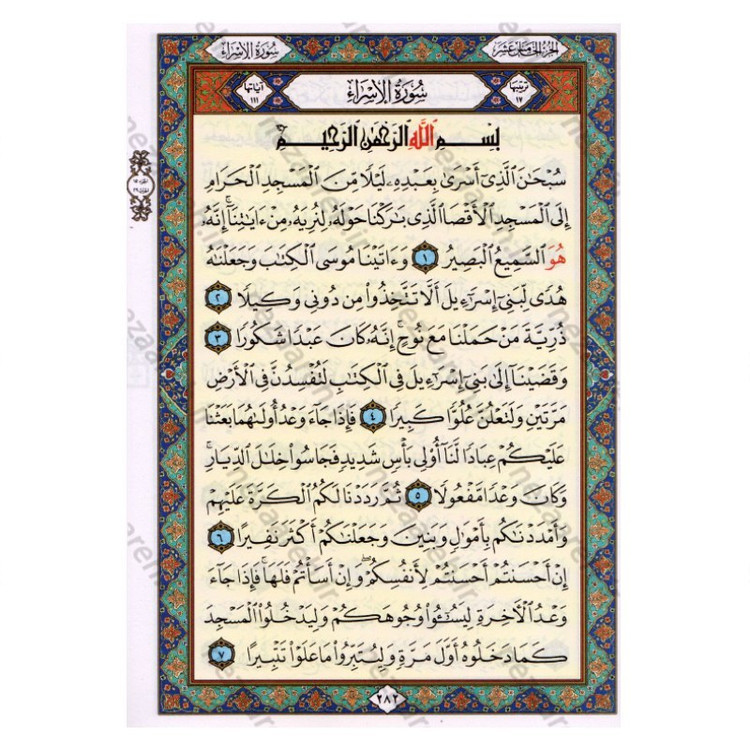 سُورَةُ الإِسْرَاءِ
الجزء الخامس عشر
آیاتها ١١١
سُورَةُ الإِسْرَاءِ
ترتیبها ١٧
بِسْمِ ٱللَّهِ ٱلرَّحْمَٰنِ ٱلرَّحِيمِ
سُبْحَٰنَ ٱلَّذِىٓ أَسْرَىٰ بِعَبْدِهِۦ لَيْلًا مِّنَ ٱلْمَسْجِدِ ٱلْحَرَامِ
إِلَى ٱلْمَسْجِدِ ٱلْأَقْصَا ٱلَّذِى بَٰرَكْنَا حَوْلَهُۥ لِنُرِيَهُۥ مِنْ ءَايَٰتِنَآ ۚ إِنَّهُۥ
هُوَ ٱلسَّمِيعُ ٱلْبَصِيرُ ١ وَءَاتَيْنَا مُوسَى ٱلْكِتَٰبَ وَجَعَلْنَٰهُ
هُدًى لِّبَنِىٓ إِسْرَٰٓءِيلَ أَلَّا تَتَّخِذُوا۟ مِن دُونِى وَكِيلًا ٢
ذُرِّيَّةَ مَنْ حَمَلْنَا مَعَ نُوحٍ ۚ إِنَّهُۥ كَانَ عَبْدًا شَكُورًا ٣
وَقَضَيْنَآ إِلَىٰ بَنِىٓ إِسْرَٰٓءِيلَ فِى ٱلْكِتَٰبِ لَتُفْسِدُنَّ فِى ٱلْأَرْضِ
مَرَّتَيْنِ وَلَتَعْلُنَّ عُلُوًّا كَبِيرًا ٤ فَإِذَا جَآءَ وَعْدُ أُولَىٰهُمَا بَعَثْنَا
عَلَيْكُمْ عِبَادًا لَّنَآ أُو۟لِى بَأْسٍ شَدِيدٍ فَجَاسُوا۟ خِلَٰلَ ٱلدِّيَارِ ۚ
وَكَانَ وَعْدًا مَّفْعُولًا ٥ ثُمَّ رَدَدْنَا لَكُمُ ٱلْكَرَّةَ عَلَيْهِمْ
وَأَمْدَدْنَٰكُم بِأَمْوَٰلٍ وَبَنِينَ وَجَعَلْنَٰكُمْ أَكْثَرَ نَفِيرًا ٦
إِنْ أَحْسَنتُمْ أَحْسَنتُمْ لِأَنفُسِكُمْ ۖ وَإِنْ أَسَأْتُمْ فَلَهَا ۚ فَإِذَا جَآءَ
وَعْدُ ٱلْـَٔاخِرَةِ لِيَسُۥٓـُٔوا۟ وُجُوهَكُمْ وَلِيَدْخُلُوا۟ ٱلْمَسْجِدَ
كَمَا دَخَلُوهُ أَوَّلَ مَرَّةٍ وَلِيُتَبِّرُوا۟ مَا عَلَوْا۟ تَتْبِيرًا ٧
٢٨٢